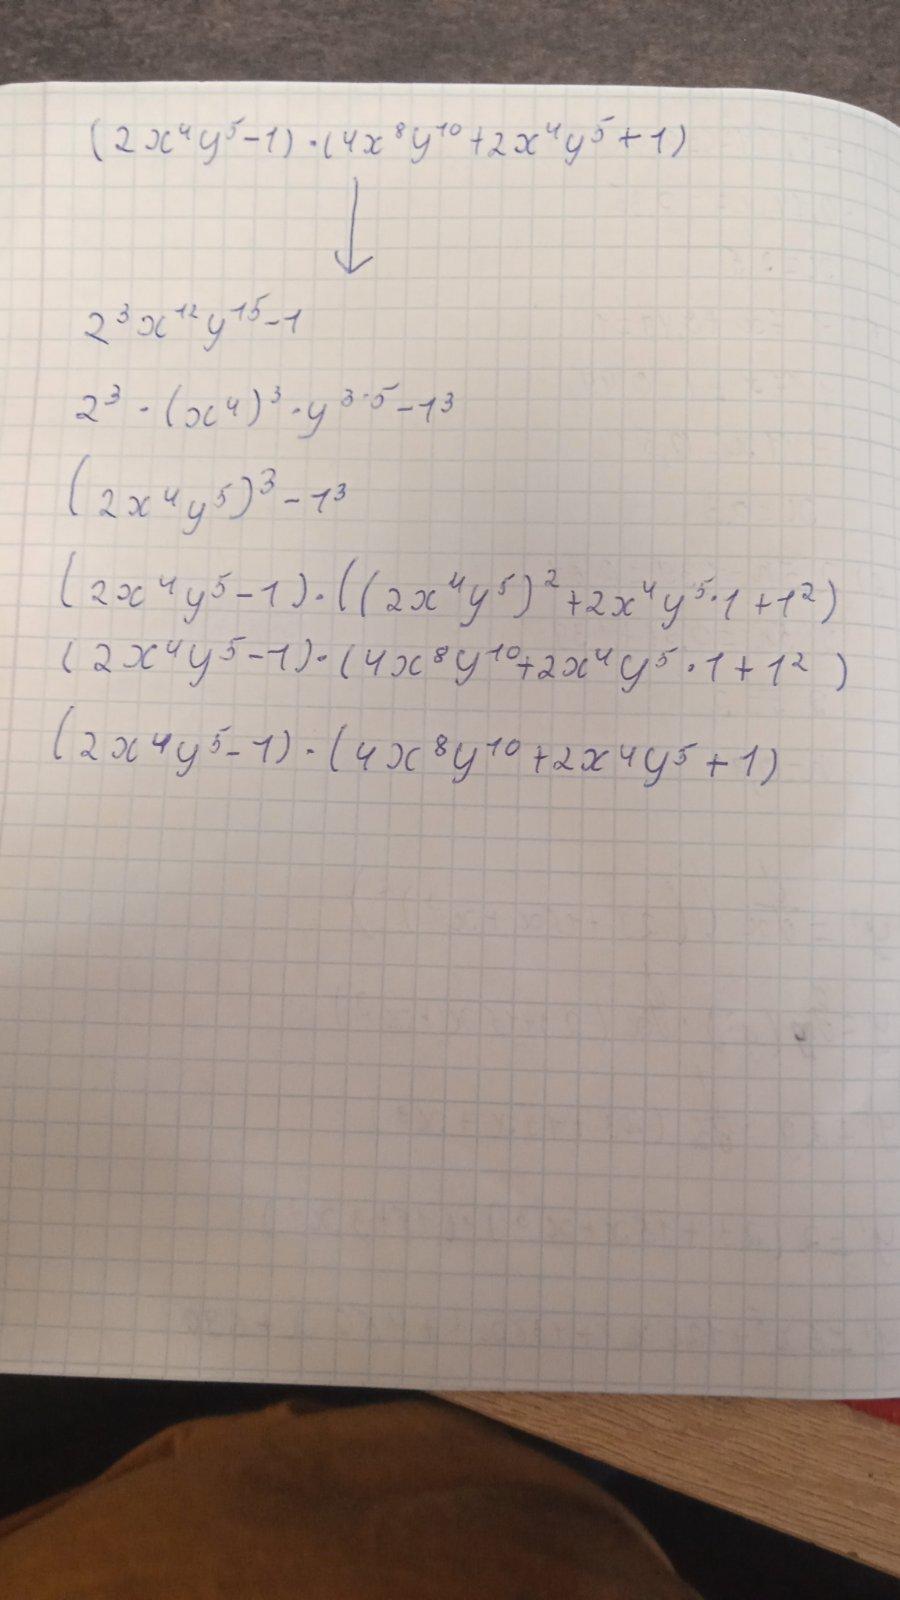 (2x⁴y⁵-1)·(4x⁸y¹⁰+2x⁴y⁵+1)
2³x¹²y¹⁵-1
2³·(x⁴)³·y³·⁵-1³
(2x⁴y⁵)³-1³
(2x⁴y⁵-1)·((2x⁴y⁵)²+2x⁴y⁵·1+1²)
(2x⁴y⁵-1)·(4x⁸y¹⁰+2x⁴y⁵·1+1²)
(2x⁴y⁵-1)·(4x⁸y¹⁰+2x⁴y⁵+1)